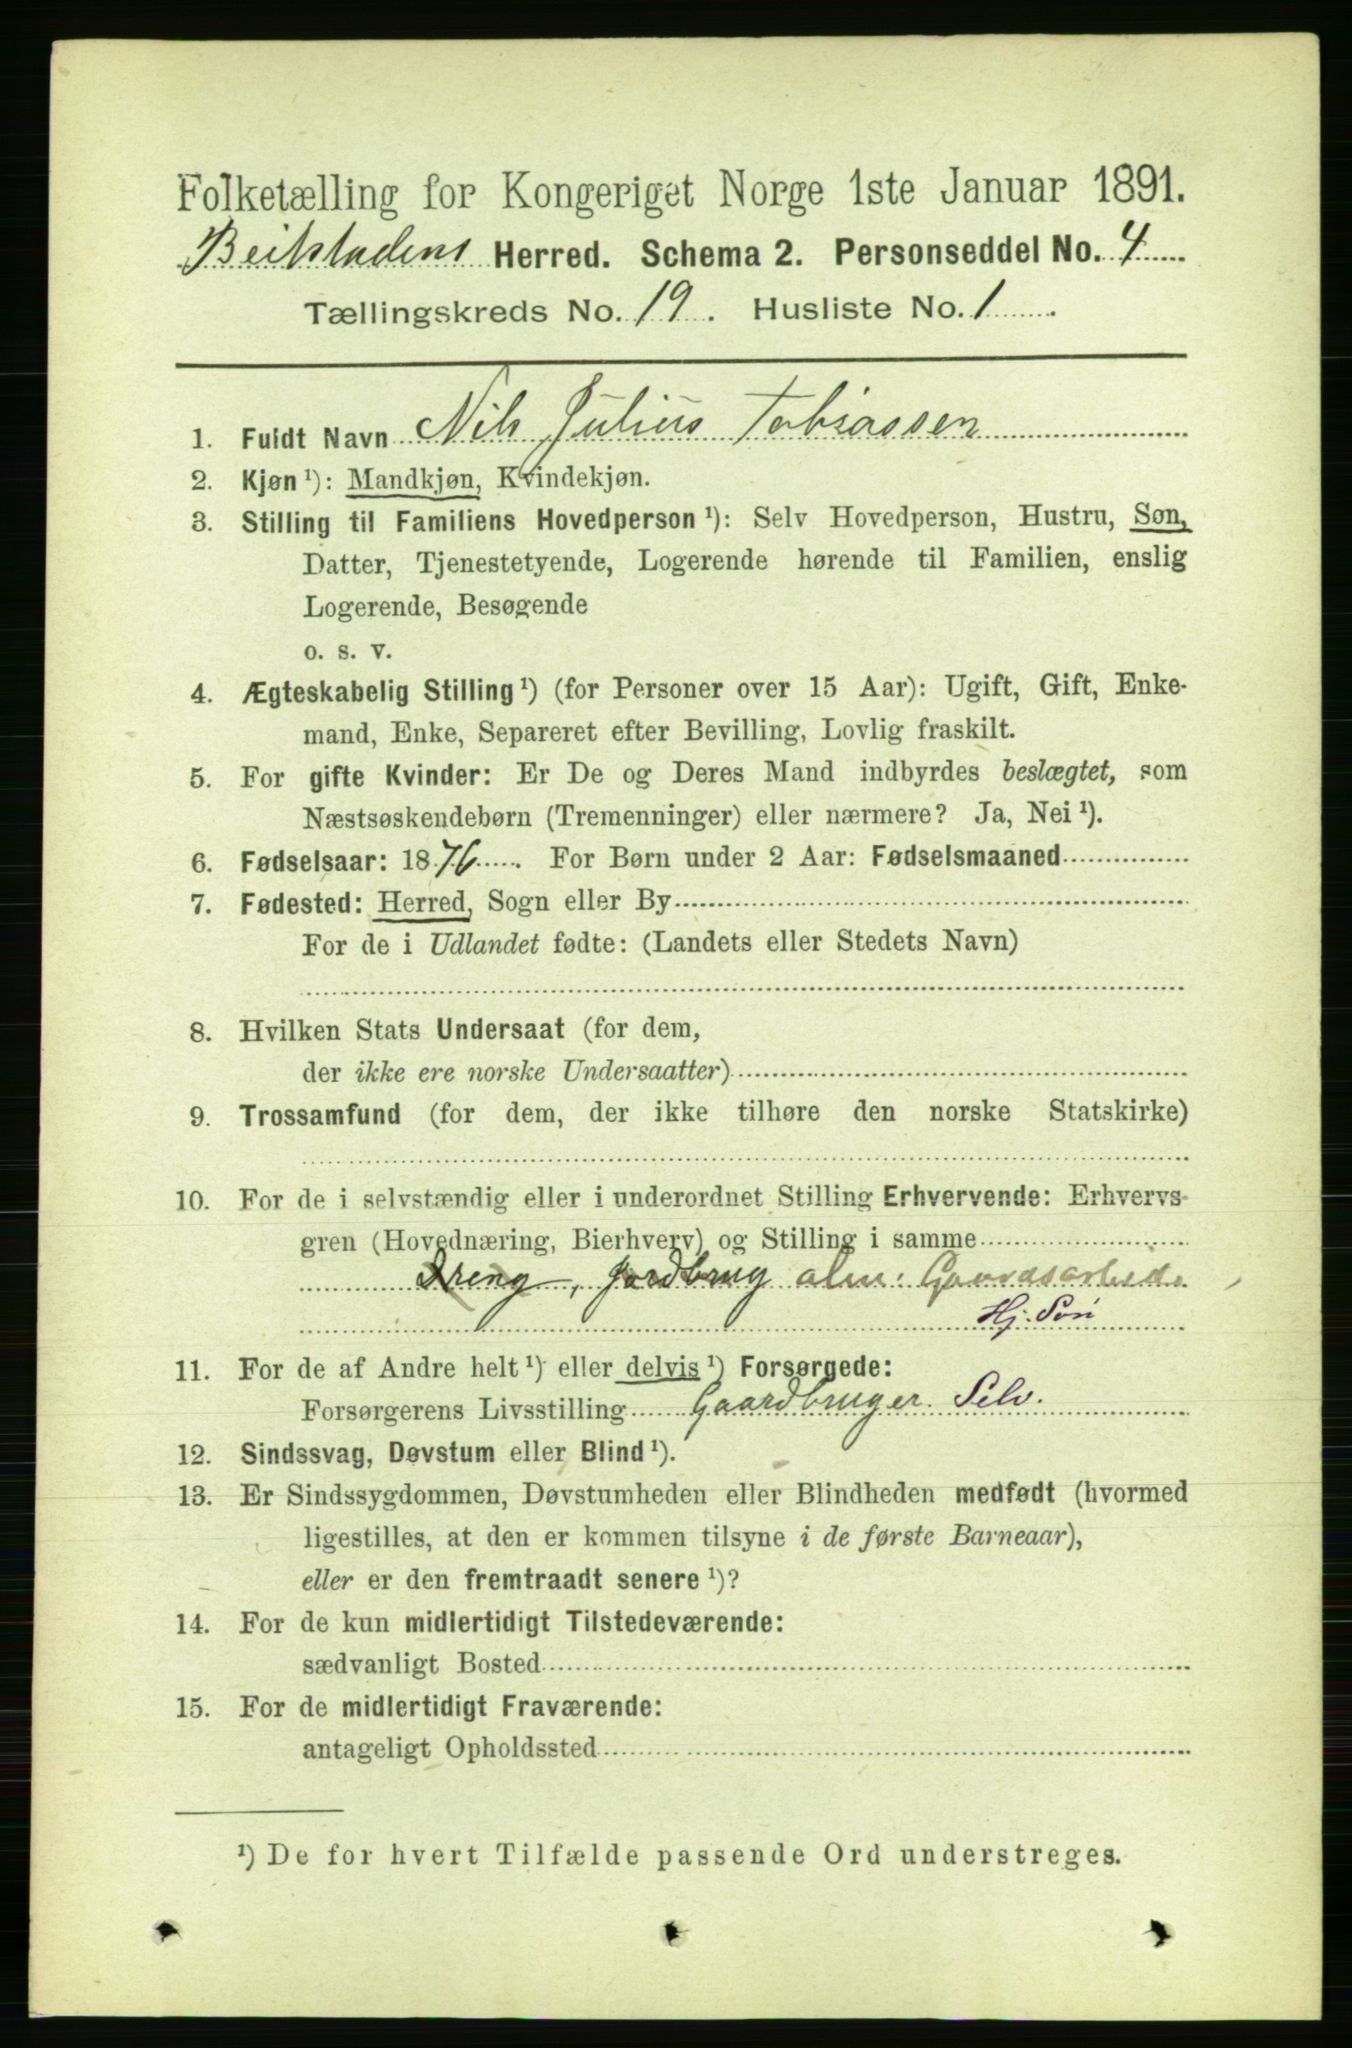 Folketælling for Kongeriget Norge 1ste Januar 1891.
Beitstadens Herred. Schema 2. Personseddel No. 4
Tællingskreds No. 19. Husliste No. 1
1. Fuldt Navn Nils Julius Tobiassen
2. Kjøn ¹): Mandkjøn, Kvindekjøn.
3. Stilling til Familiens Hovedperson ¹): Selv Hovedperson, Hustru, Søn,
Datter, Tjenestetyende, Logerende hørende til Familien, enslig
Logerende, Besøgende
o. s. v.
4. Ægteskabelig Stilling ¹) (for Personer over 15 Aar): Ugift, Gift, Enke-
mand, Enke, Separeret efter Bevilling, Lovlig fraskilt.
5. For gifte Kvinder: Er De og Deres Mand indbyrdes beslægtet, som
Næstsøskendebørn (Tremenninger) eller nærmere? Ja, Nei ¹).
6. Fødselsaar: 1876. For Børn under 2 Aar: Fødselsmaaned
7. Fødested: Herred, Sogn eller By
For de i Udlandet fødte: (Landets eller Stedets Navn)
8. Hvilken Stats Undersaat (for dem,
der ikke ere norske Undersaatter)
9. Trossamfund (for dem, der ikke tilhøre den norske Statskirke)
10. For de i selvstændig eller i underordnet Stilling Erhvervende: Erhvervs-
gren (Hovednæring, Bierhverv) og Stilling i samme
Dreng, Jordbrug alm. Gaardsarbeid.
Hj. Søn
11. For de af Andre helt ¹) eller delvis ¹) Forsørgede:
Forsørgerens Livsstilling Gaardbruger. Selv.
12. Sindssvag, Døvstum eller Blind ¹).
13. Er Sindssygdommen, Døvstumheden eller Blindheden medfødt (hvormed
ligestilles, at den er kommen tilsyne i de første Barneaar),
eller er den fremtraadt senere ¹)?
14. For de kun midlertidigt Tilstedeværende:
sædvanligt Bosted
15. For de midlertidigt Fraværende:
antageligt Opholdssted
¹) De for hvert Tilfælde passende Ord understreges.